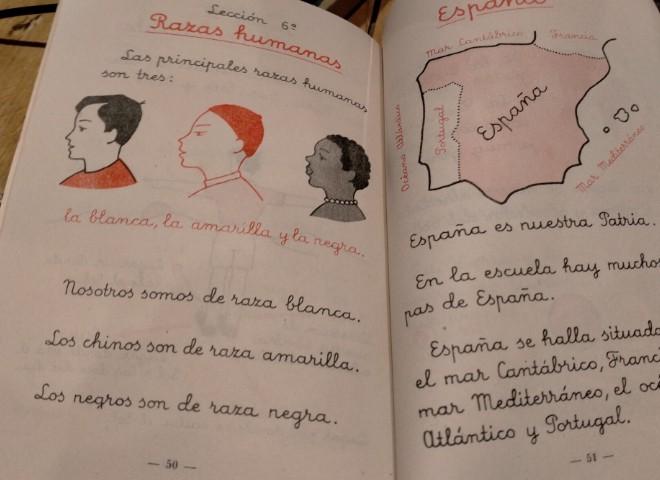 Lección 6ª
Razas humanas
Las principales razas humanas
son tres:
la blanca, la amarilla y la negra.
Nosotros somos de raza blanca.
Los chinos son de raza amarilla.
Los negros son de raza negra.
— 50 —
España
Mar Cantábrico
Francia
Océano Atlántico
Portugal
España
Mar Mediterráneo
España es nuestra Patria.
En la escuela hay muchos
pas de España.
España se halla situada
el mar Cantábrico, Franci
mar Mediterráneo, el océ
Atlántico y Portugal.
— 51 —